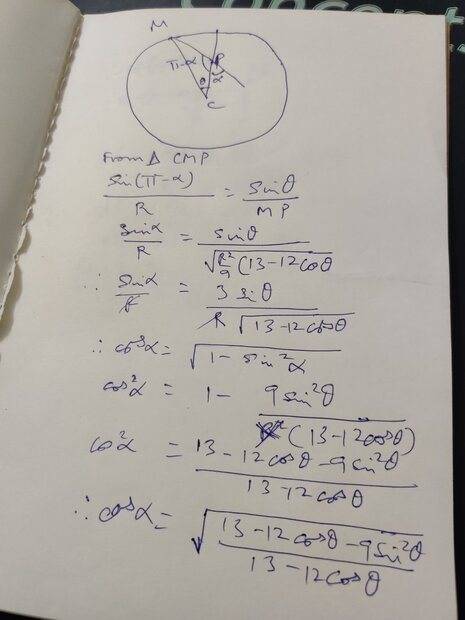 Concepts
M
π-α
P
θ α
C
From Δ CMP
sin(π-α)/R = sinθ/MP
sinα/R = sinθ/√(R²/9 (13-12cosθ
∴ sinα/R = 3 sinθ/(R √(13-12cosθ))
∴ cosα = √(1 - sin²α)
cos²α = 1 - 9sin²θ/(13-12cosθ)
cos²α = (13-12cosθ-9sin²θ)/(13-12cosθ)
∴ cosα = √((13-12cosθ-9sin²θ)/(13-12cosθ))